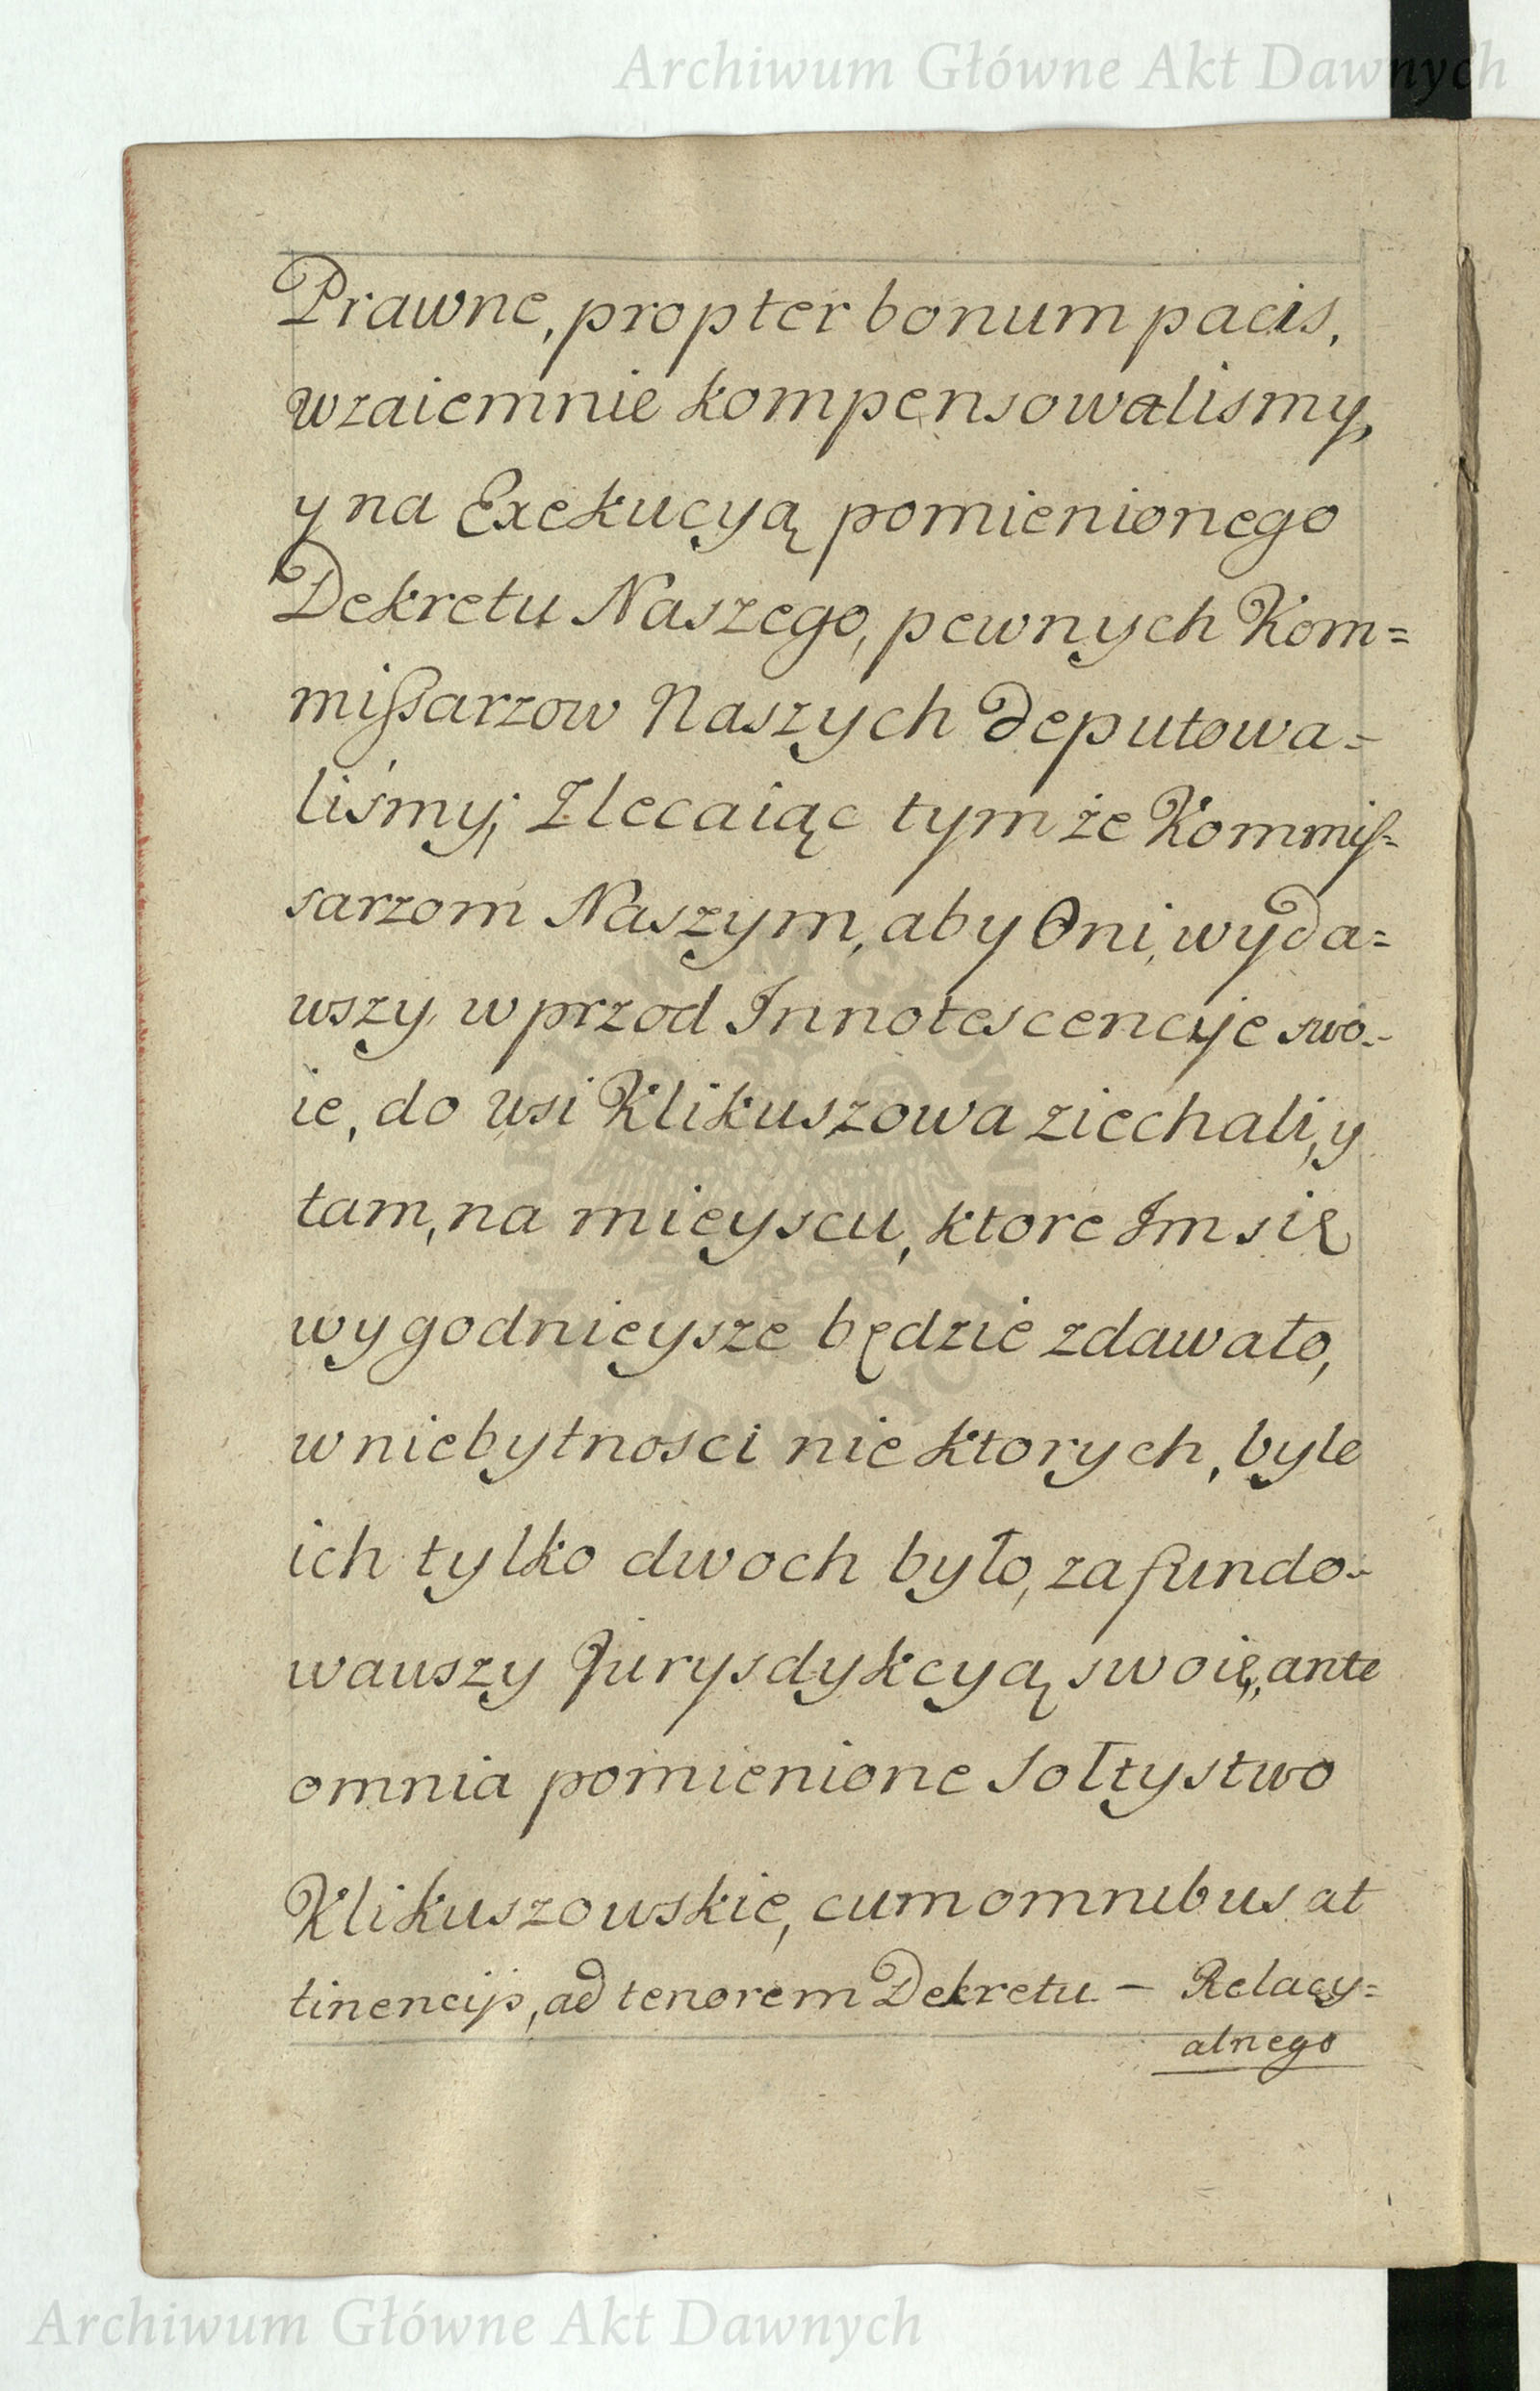 Archiwum Główne Akt Dawnych
Prawne, propter bonum pacis,
wzaiemnie kompensowalismy,
y na Exekucyą pomienionego
Dekretu Naszego, pewnych Kom=
mißarzow Naszych deputowa=
liśmy; Zlecaiąc tym że Kommis=
sarzom Naszym, aby Oni, wyda=
wszy, w przod Innotescencyje swo=
ie, do wsi Klikuszowa ziechali, y
tam, na mieyscu, ktore Im się
wygodnieysze będzie zdawało,
w niebytnosci nie ktorych, byle
ich tylko dwoch było, zafundo=
wawszy Jurysdykcyą swoię, ante
omnia pomienione Sołtystwo
Klikuszowskie, cum omnibus at
tinencijs, ad tenorem Dekretu – Relacy=
alnego
Archiwum Główne Akt Dawnych